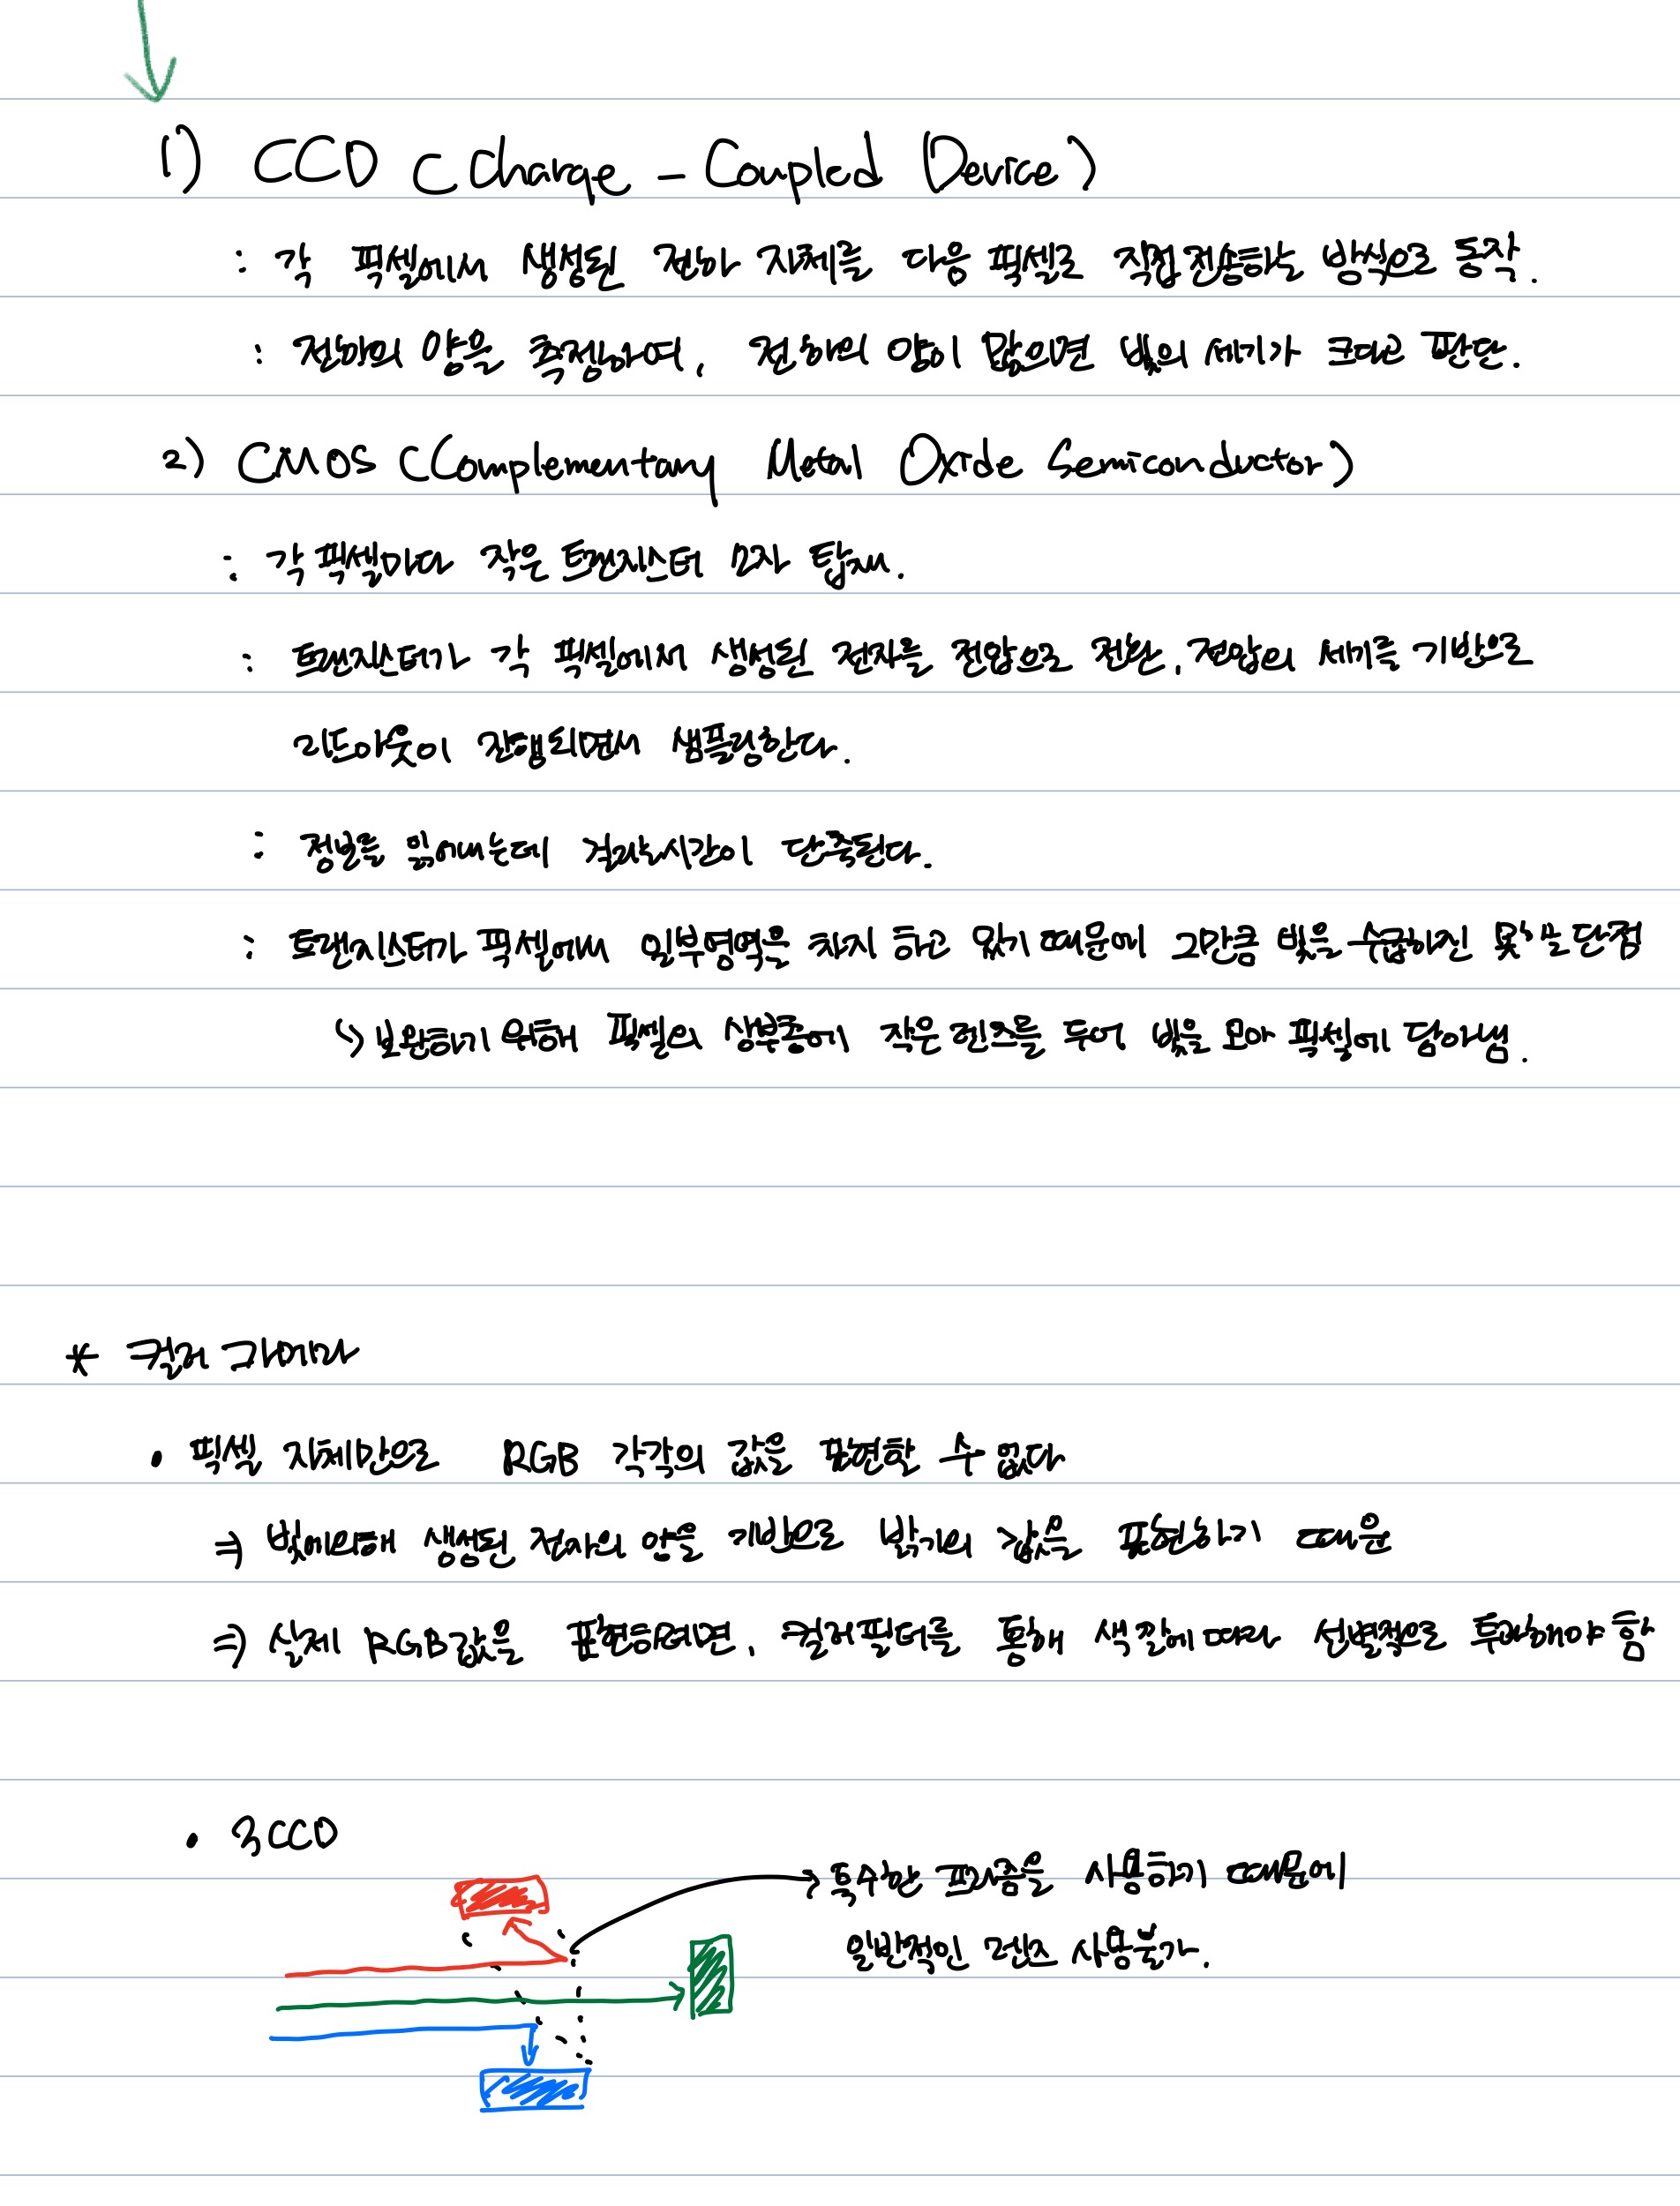 1) CCD (Charge-Coupled Device)
: 각 픽셀에서 생성된 전하 자체를 다음 픽셀로 직접 전송하는 방식으로 동작.
: 전하의 양을 측정하여, 전하의 양이 많으면 빛의 세기가 크다고 판단.
2) CMOS (Complementary Metal Oxide Semiconductor)
: 각 픽셀마다 작은 트랜지스터 모자 탑재.
: 트랜지스터가 각 픽셀에서 생성된 전자를 전압으로 전환, 전압의 세기를 기반으로
리드아웃이 진행되면서 샘플링한다.
: 정보를 읽어내는데 걸리는시간이 단축된다.
: 트랜지스터가 픽셀에서 일부영역을 차지 하고 있기 때문에 그만큼 빛을 수급하진 못하는 단점
↳ 보완하기 위해 픽셀의 상부층에 작은 렌즈를 두어 빛을 모아 픽셀에 담아냄.
* 컬러 카메라
• 픽셀 자체만으로 RGB 각각의 값을 표현할 수 없다
⇒ 빛에의해 생성된 전자의 양을 기반으로 밝기의 값을 표현하기 때문
⇒ 실제 RGB값을 표현하려면, 컬러필터를 통해 색깔에 따라 선별적으로 투과해야 함
• 3CCD
→ 특수한 프리즘을 사용하기 때문에
일반적인 렌즈 사용불가.